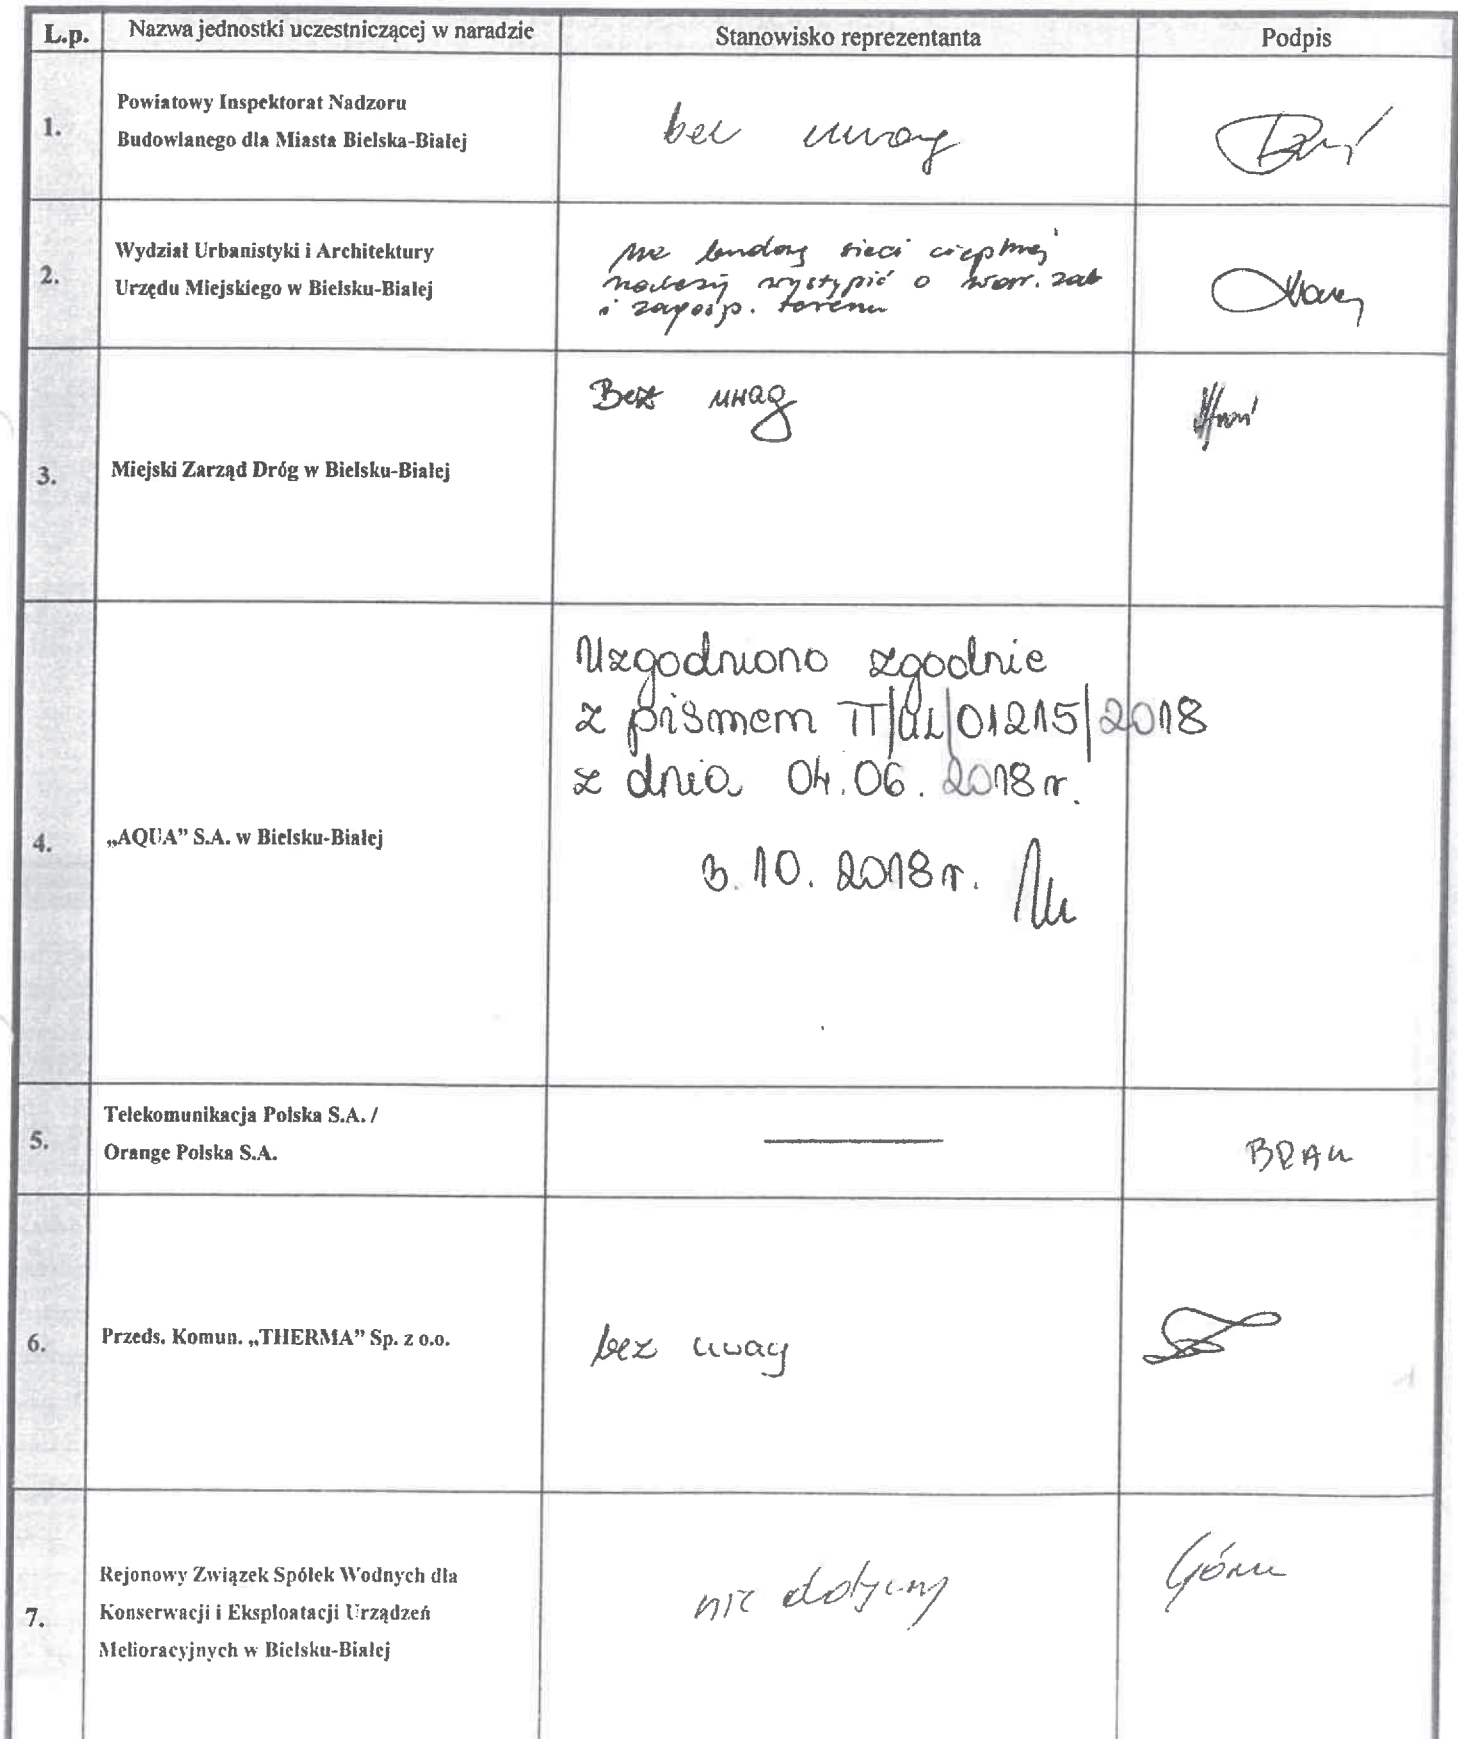 L.p. Nazwa jednostki uczestniczącej w naradzie Stanowisko reprezentanta Podpis
1. Powiatowy Inspektorat Nadzoru
Budowlanego dla Miasta Bielska-Białej
bez uwag
2. Wydział Urbanistyki i Architektury
Urzędu Miejskiego w Bielsku-Białej
na budowę sieci cieplnej
należy wystąpić o war. zab
i zagosp. terenu
3. Miejski Zarząd Dróg w Bielsku-Białej
Bez uwag
4. „AQUA” S.A. w Bielsku-Białej
Uzgodniono zgodnie
z pismem TT/UL/01215/2018
z dnia 04.06.2018r.
3.10.2018r.
5. Telekomunikacja Polska S.A. /
Orange Polska S.A.
BRAK
6. Przeds. Komun. „THERMA” Sp. z o.o.
bez uwag
7. Rejonowy Związek Spółek Wodnych dla
Konserwacji i Eksploatacji Urządzeń
Melioracyjnych w Bielsku-Białej
nie dotyczy